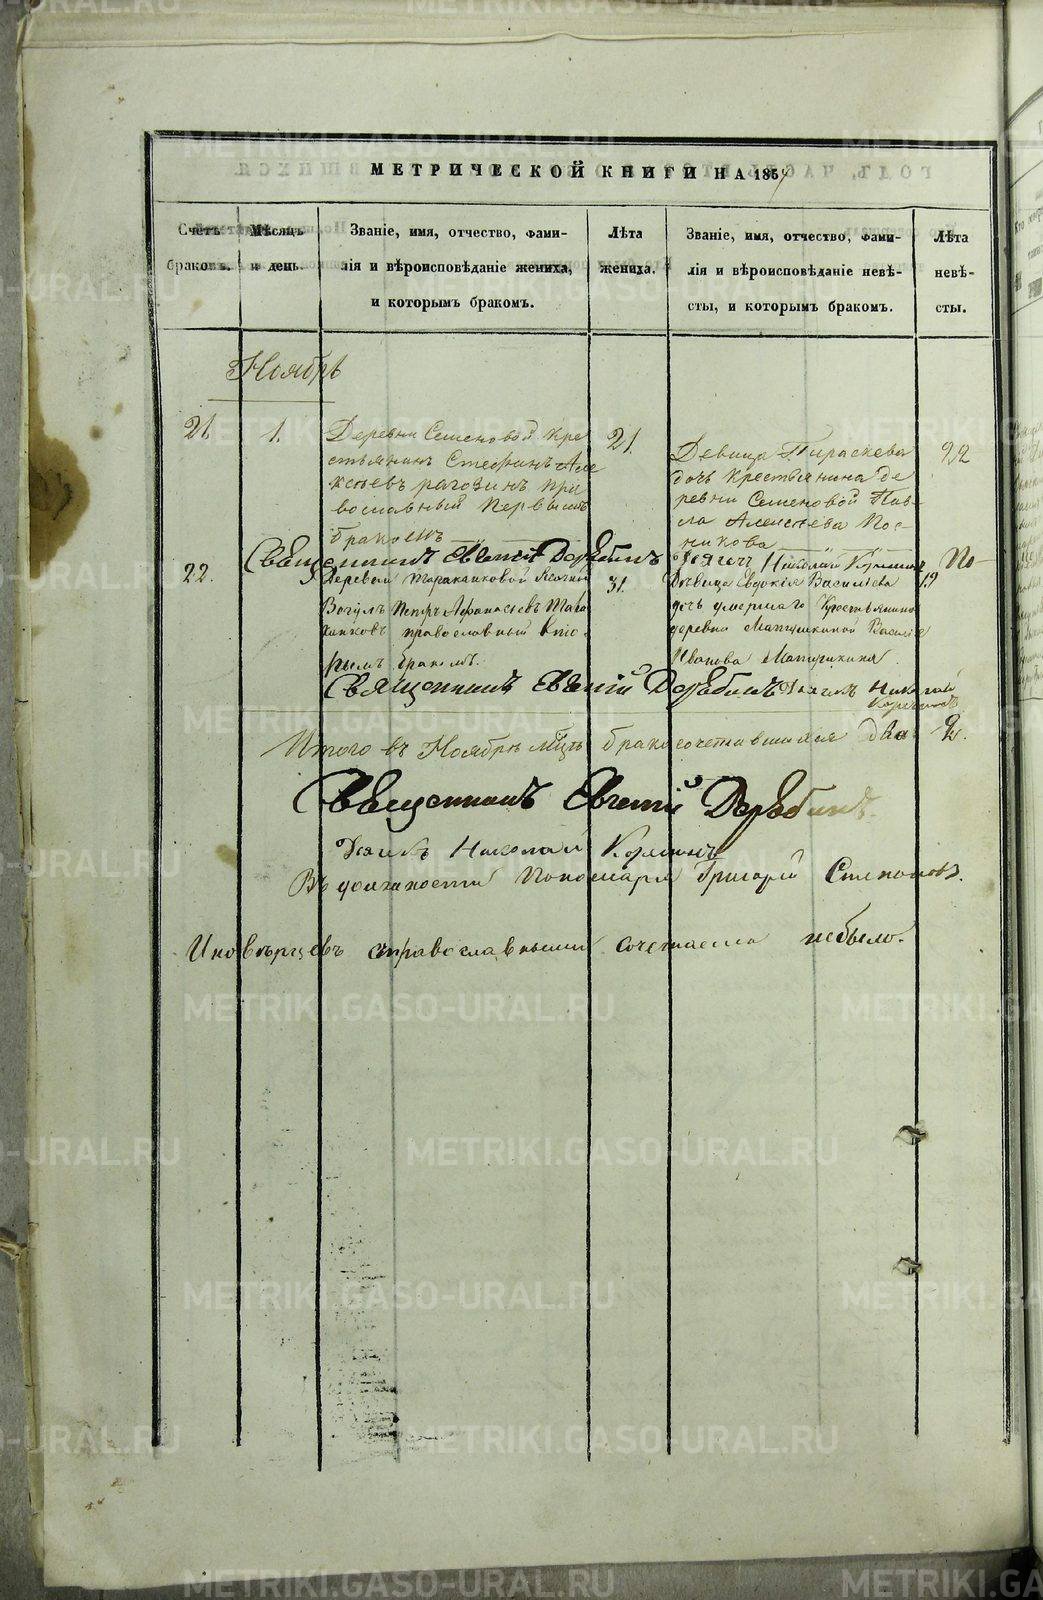 МЕТРИЧЕСКОЙ КНИГИ НА 1854
Счетъ браковъ.
Мѣсяцъ и день.
Званіе, имя, отчество, фами-
лія и вѣроисповѣданіе жениха,
и которымъ бракомъ.
Лѣта жениха.
Званіе, имя, отчество, фами-
лія и вѣроисповѣданіе невѣ-
сты, и которымъ бракомъ.
Лѣта невѣ-
сты.
Ноябрь
21.
1.
Деревни Семеновой кре
стьянинъ Стефанъ Але
ксѣевъ рагозинъ пра
вославный первымъ
бракомъ
21.
Девица Параскева
дочь крестьянина де
ревни Семеновой Пав-
ла Алексѣева Пос-
никова
22
Священникъ Евгеній Дерябинъ Дьячекъ Николай
22.
Деревни Таракановой Ясачный
Вогулъ Петръ Афанасьевъ Тара
кановъ православный вто-
рымъ бракомъ.
31.
Дѣвица Евдокія Васильева
дочь умершаго Крестьянина
деревни Матушкиной Василія
Иванова
19
Священникъ Евгеній Дерябинъ Дьячекъ Николай
Итого въ Ноябрѣ мѣсяцѣ бракосочетавшихся два 2.
Священникъ Евгеній Дерябинъ.
Дьячекъ Николай
Въ должности Пономаря Григорій Степановъ.
Иновѣрцевъ справославными сочетаемо небыло.
METRIKI.GASO-URAL.RU